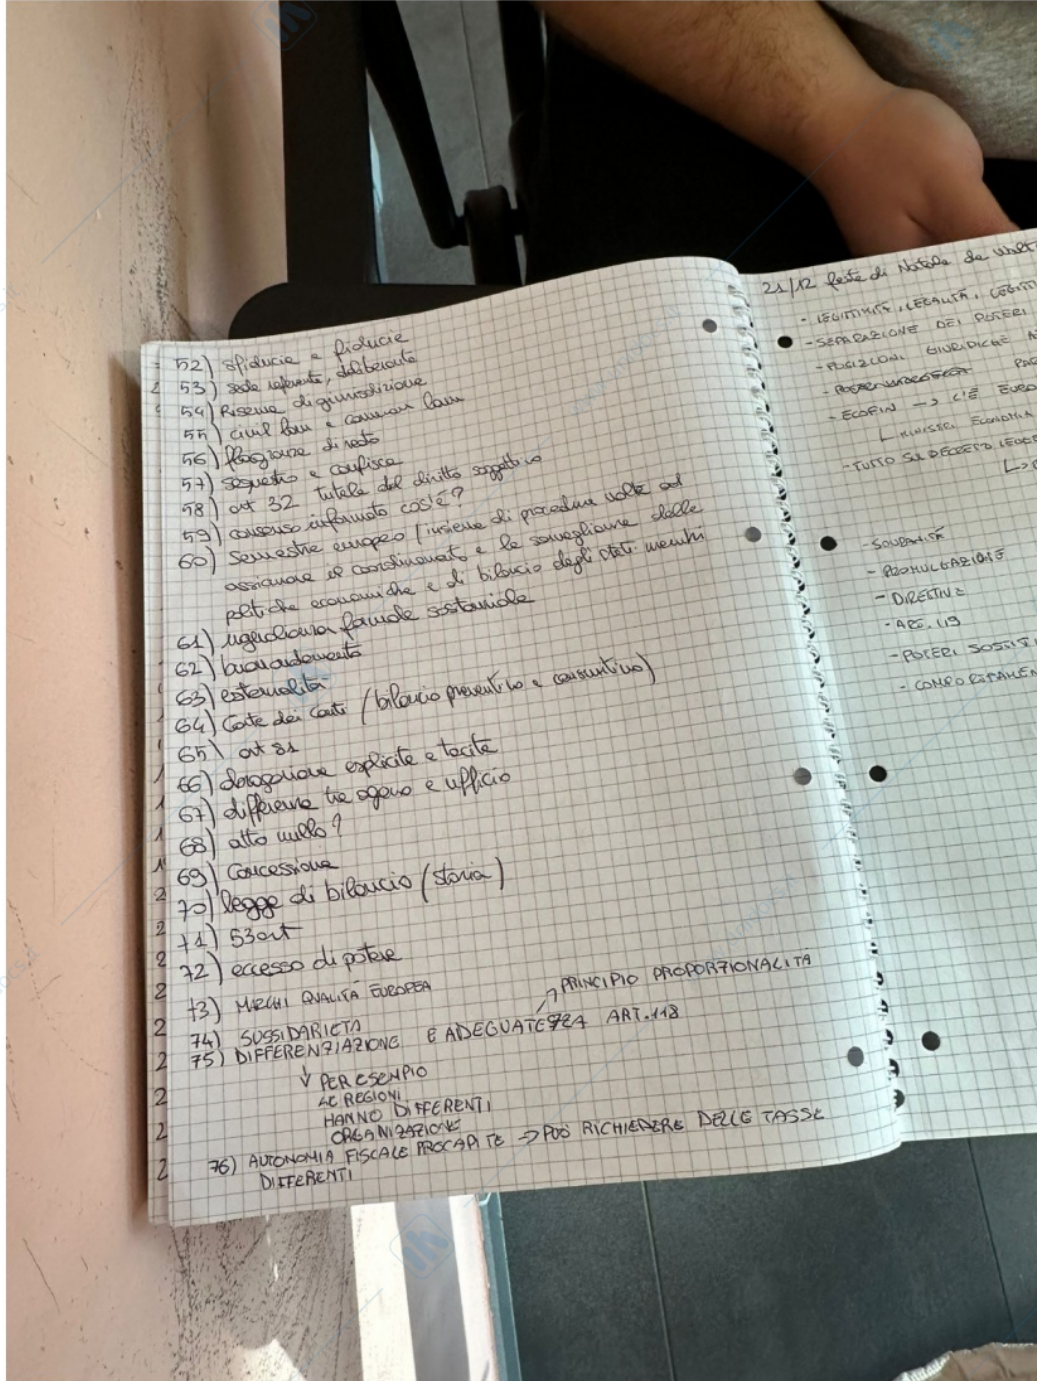 52) sfiducia e fiducia
53) sede referente, deliberante
54) Riserva di giurisdizione
55) civil law e common law
56) flagranza di reato
57) sequestro e confisca
58) art 32 tutela del diritto soggettivo
59) consenso informato cos'é?
60) Semestre europeo (insieme di procedure volte ad
assicurare il coordinamento e la sorveglianza delle
politiche economiche e di bilancio degli stati membri
61) uguaglianza formale sostanziale
62) buon andamento
63) esternalità
64) Corte dei Conti (bilancio preventivo e consuntivo)
65) art 81
66) abrogazione esplicita e tacita
67) differenza tra organo e ufficio
68) atto nullo?
69) Concessione
70) legge di bilancio (storia)
71) 53 art
72) eccesso di potere
73) MARCHI QUALITÀ EUROPEA
74) SUSSIDARIETÀ
PRINCIPIO PROPORZIONALITÀ
75) DIFFERENZIAZIONE E ADEGUATEZZA ART.118
↓ PER ESEMPIO
LE REGIONI
HANNO DIFFERENTI
ORGANIZAZIONE
76) AUTONOMIA FISCALE PROCAPITE -> PUÒ RICHIEDERE DELLE TASSE
DIFFERENTI
21/12 festa di Natale da
- LEGITTIMITÀ, LEGALITÀ,
- SEPARAZIONE DEI POTERI
- POSIZIONI GIURIDICHE
- ECOFIN -> C'È EURO
MINISTRI ECONOMIA
- TUTTO SUL DECRETO
- SOVRANITÀ
- PROMULGAZIONE
- DIRETTIVE
- ART. 119
- POTERI